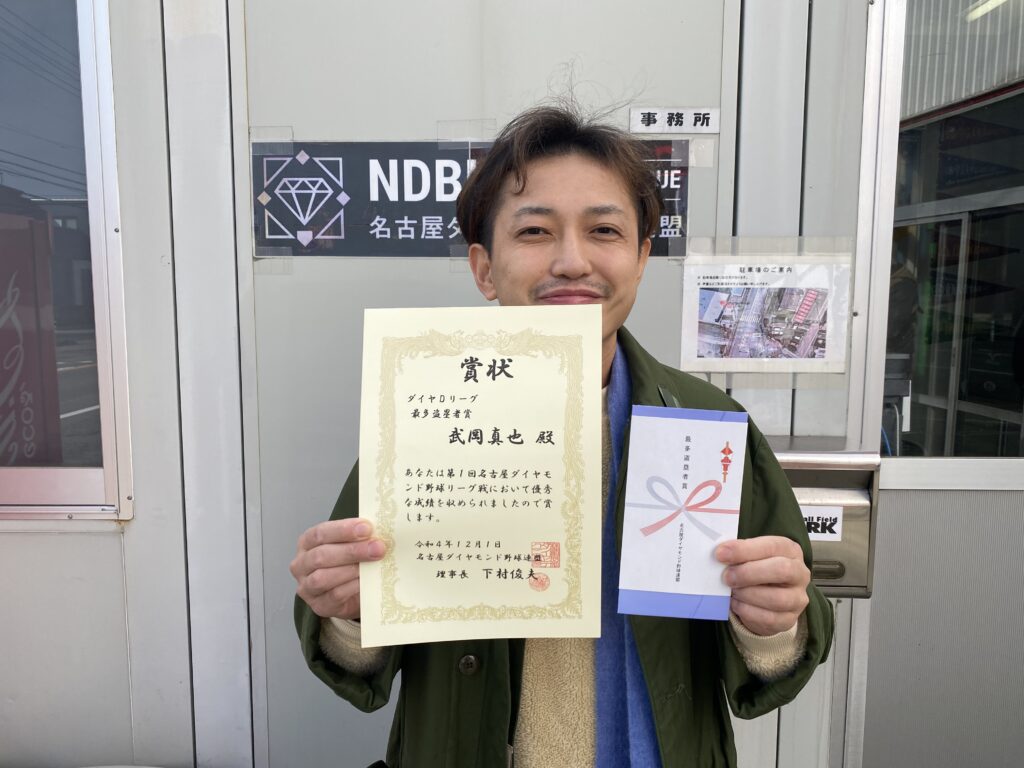 事務所
NDB
UE
名古屋ダ
盟
駐車場のご案内
賞状
ダイヤDリーグ
最多盗塁者賞
武岡真也 殿
あなたは第1回名古屋ダイヤモ
ンド野球リーグ戦において優秀
な成績を収められましたので賞
します。
令和4年12月1日
名古屋ダイヤモンド野球連盟
理事長 下村俊夫
最多盗塁者賞
名古屋ダイヤモンド野球連盟
all Field
RK